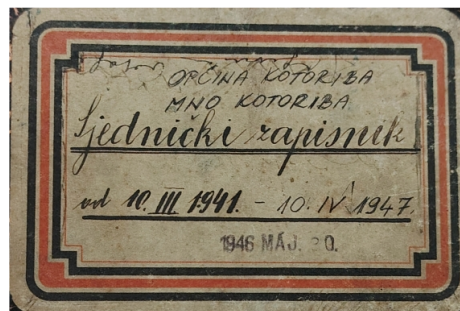 OPĆINA KOTORIBA
MNO KOTORIBA
Sjednički zapisnik
od 10. III. 1941. - 10. IV 1947.
1946 MÁJ. 20.